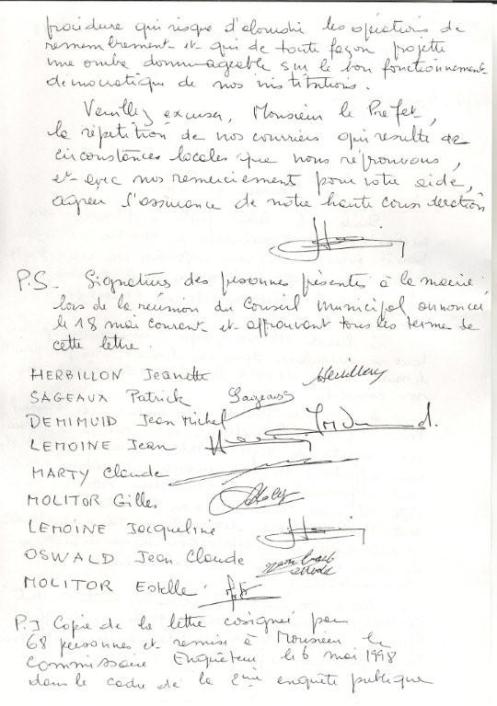 procédure qui risque d'alourdir les opérations de
remembrement et qui de toute façon projette
une ombre dommageable sur le bon fonctionnement
democratique de nos institutions.
Veuillez excuser, Monsieur le Prefet,
la répétition de nos courriers qui resulte de
circonstances locales que nous réprouvons,
et avec nos remerciement pour votre aide,
agréer l'assurance de notre haute consideration
P.S. Signatures des personnes présentes à la mairie
lors de la réunion du Conseil Municipal annoncée
le 18 mai courant et approuvant tous les terme de
cette lettre.
HERBILLON Jeanette
SAGEAUX Patrick Sageaux
DEMIMUID Jean Michel
LEMOINE Jean
MARTY Claude
MOLITOR Gilles
LEMOINE Jacqueline
OSWALD Jean Claude
MOLITOR Estelle
P.J Copie de la lettre cosignée par
68 personnes et remise à Monsieur le
Commissaire Enquêteur le 6 mai 1998
dans le cadre de la 2ème enquête publique